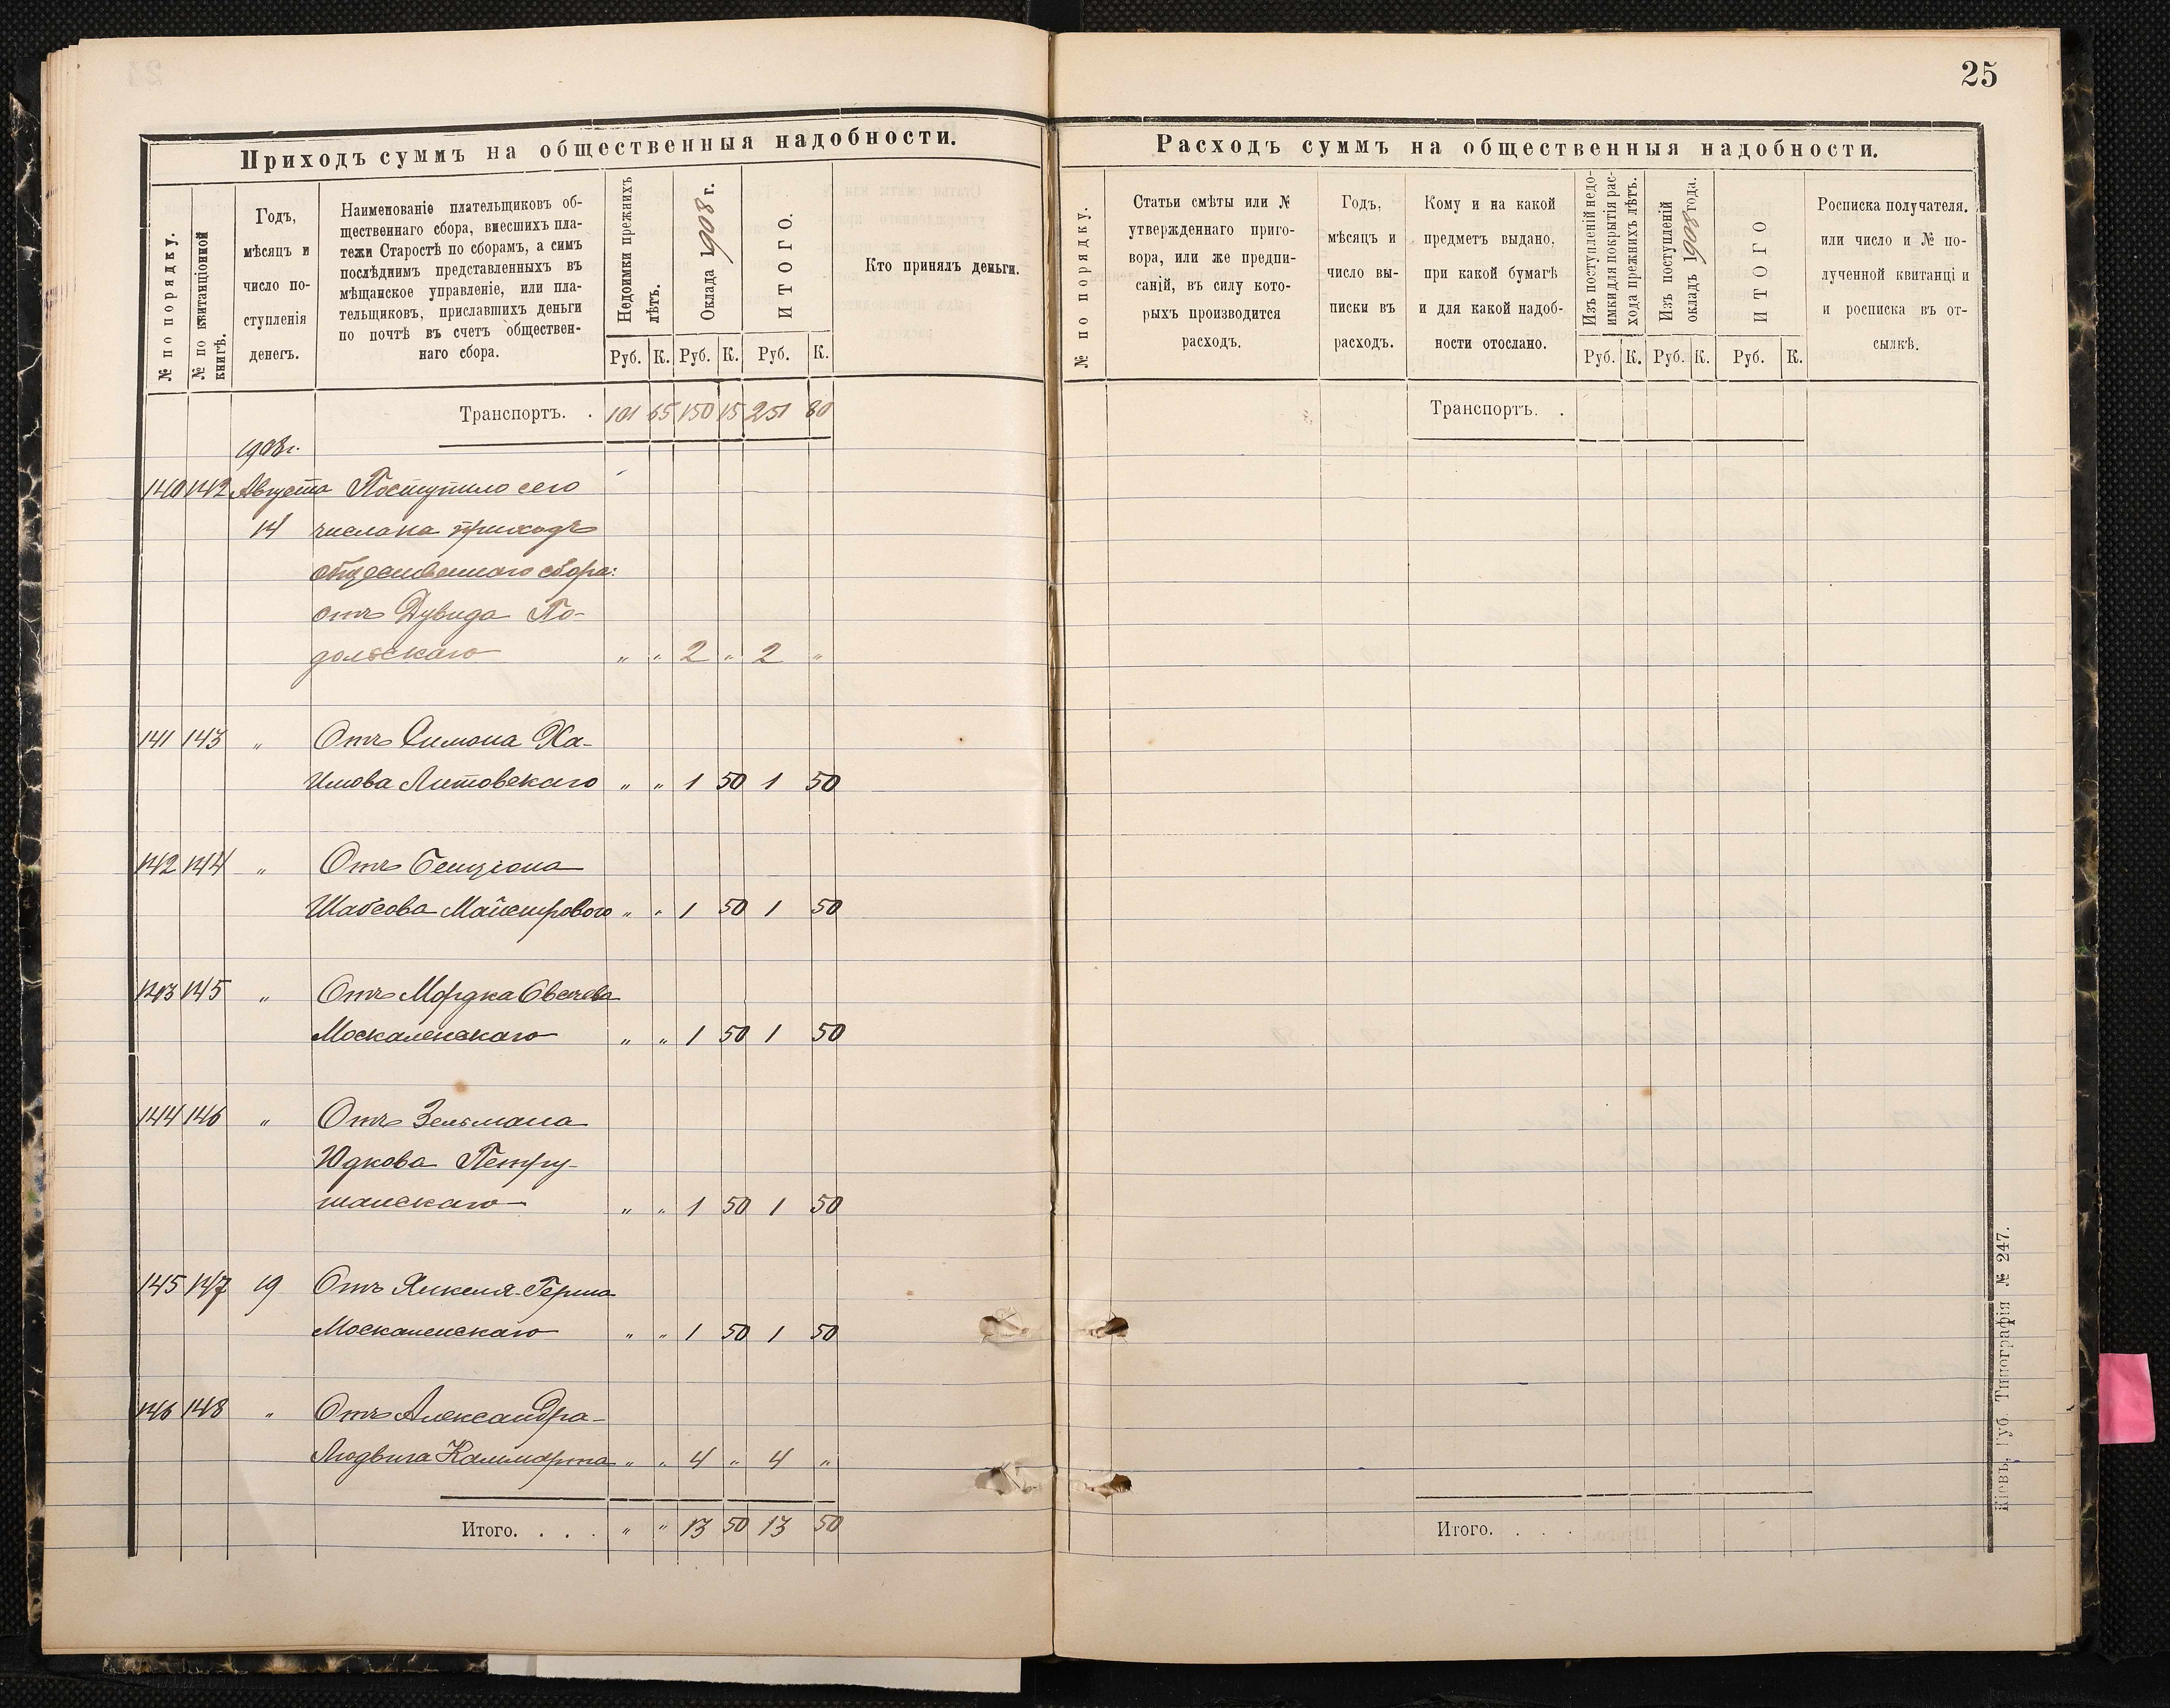 25
Приходъ суммъ на общественныя надобности.
№ по порядку.
№ по квитанціонной
книгѣ.
Годъ,
мѣсяцъ и
число по-
ступленія
денегъ.
Наименованіе плательщиковъ об-
щественнаго сбора, внесшихъ пла-
тежи Старостѣ по сборамъ, а симъ
послѣднимъ представленныхъ въ
мѣщанское управленіе, или пла-
тельщиковъ, приславшихъ деньги
по почтѣ въ счетъ обществен-
наго сбора.
Недоимки прежнихъ
лѣтъ.
Оклада 1908 г.
ИТОГО.
Руб. К. Руб. К. Руб. К.
Кто принялъ деньги.
Транспортъ. . 101 65 150 15 251 80
1908 г.
140 142 Августа Поступило сего
14 числа на приходъ
общественного сбора:
отъ Дувида По-
дольскаго " " 2 " 2 "
141 143 " Отъ Симона Ха-
имова Литовскаго " " 1 50 1 50
142 144 " Отъ Бенціона
Шабсова Майстрового " " 1 50 1 50
143 145 " Отъ Мордка Овсеева
Москаленскаго " " 1 50 1 50
144 146 " Отъ Зельмана
Юдкова Петру-
шанскаго " " 1 50 1 50
145 147 19 Отъ Янкеля-Герша
Москаленскаго " " 1 50 1 50
146 148 " Отъ Александра-
Людвига " " 4 " 4 "
Итого. . . . " " 13 50 13 50
Расходъ суммъ на общественныя надобности.
№ по порядку.
Статьи смѣты или №
утвержденнаго приго-
вора, или же предпи-
саній, въ силу кото-
рыхъ производится
расходъ.
Годъ,
мѣсяцъ и
число вы-
писки въ
расходъ.
Кому и на какой
предметъ выдано,
при какой бумагѣ
и для какой надоб-
ности отослано.
Изъ поступленій недо-
имки для покрытія рас-
хода прежнихъ лѣтъ.
Изъ поступленій
окладъ 1908 года.
ИТОГО
Руб. К. Руб. К. Руб. К.
Росписка получателя,
или число и № по-
лученной квитанціи
и росписка въ от-
сылкѣ.
Транспортъ. .
Итого. . . .
Кіевъ, Губ. Типографія № 247.